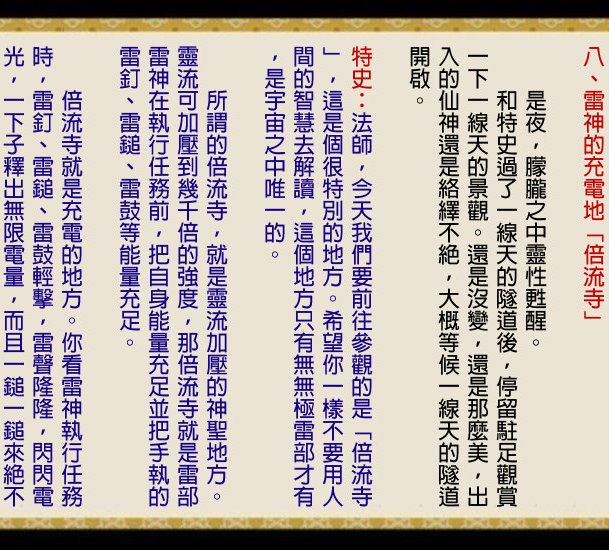 八、雷神的充電地「倍流寺」
是夜，朦朧之中靈性甦醒。
和特史過了一線天的隧道後，停留駐足觀賞
一下一線天的景觀。還是沒變，還是那麼美，出
入的仙神還是絡繹不絕，大概等候一線天的隧道
開啟。
特史：法師，今天我們要前往參觀的是「倍流寺
」，這是個很特別的地方。希望你一樣不要用人
間的智慧去解讀，這個地方只有無無極雷部才有
，是宇宙之中唯一的。
所謂的倍流寺，就是靈流加壓的神聖地方。
靈流可加壓到幾千倍的強度，那倍流寺就是雷部
雷神在執行任務前，把自身能量充足並把手執的
雷釘、雷鎚、雷鼓等能量充足。
倍流寺就是充電的地方。你看雷神執行任務
時，雷釘、雷鎚、雷鼓輕擊，雷聲隆隆，閃閃電
光，一下子釋出無限電量，而且一鎚一鎚來絕不